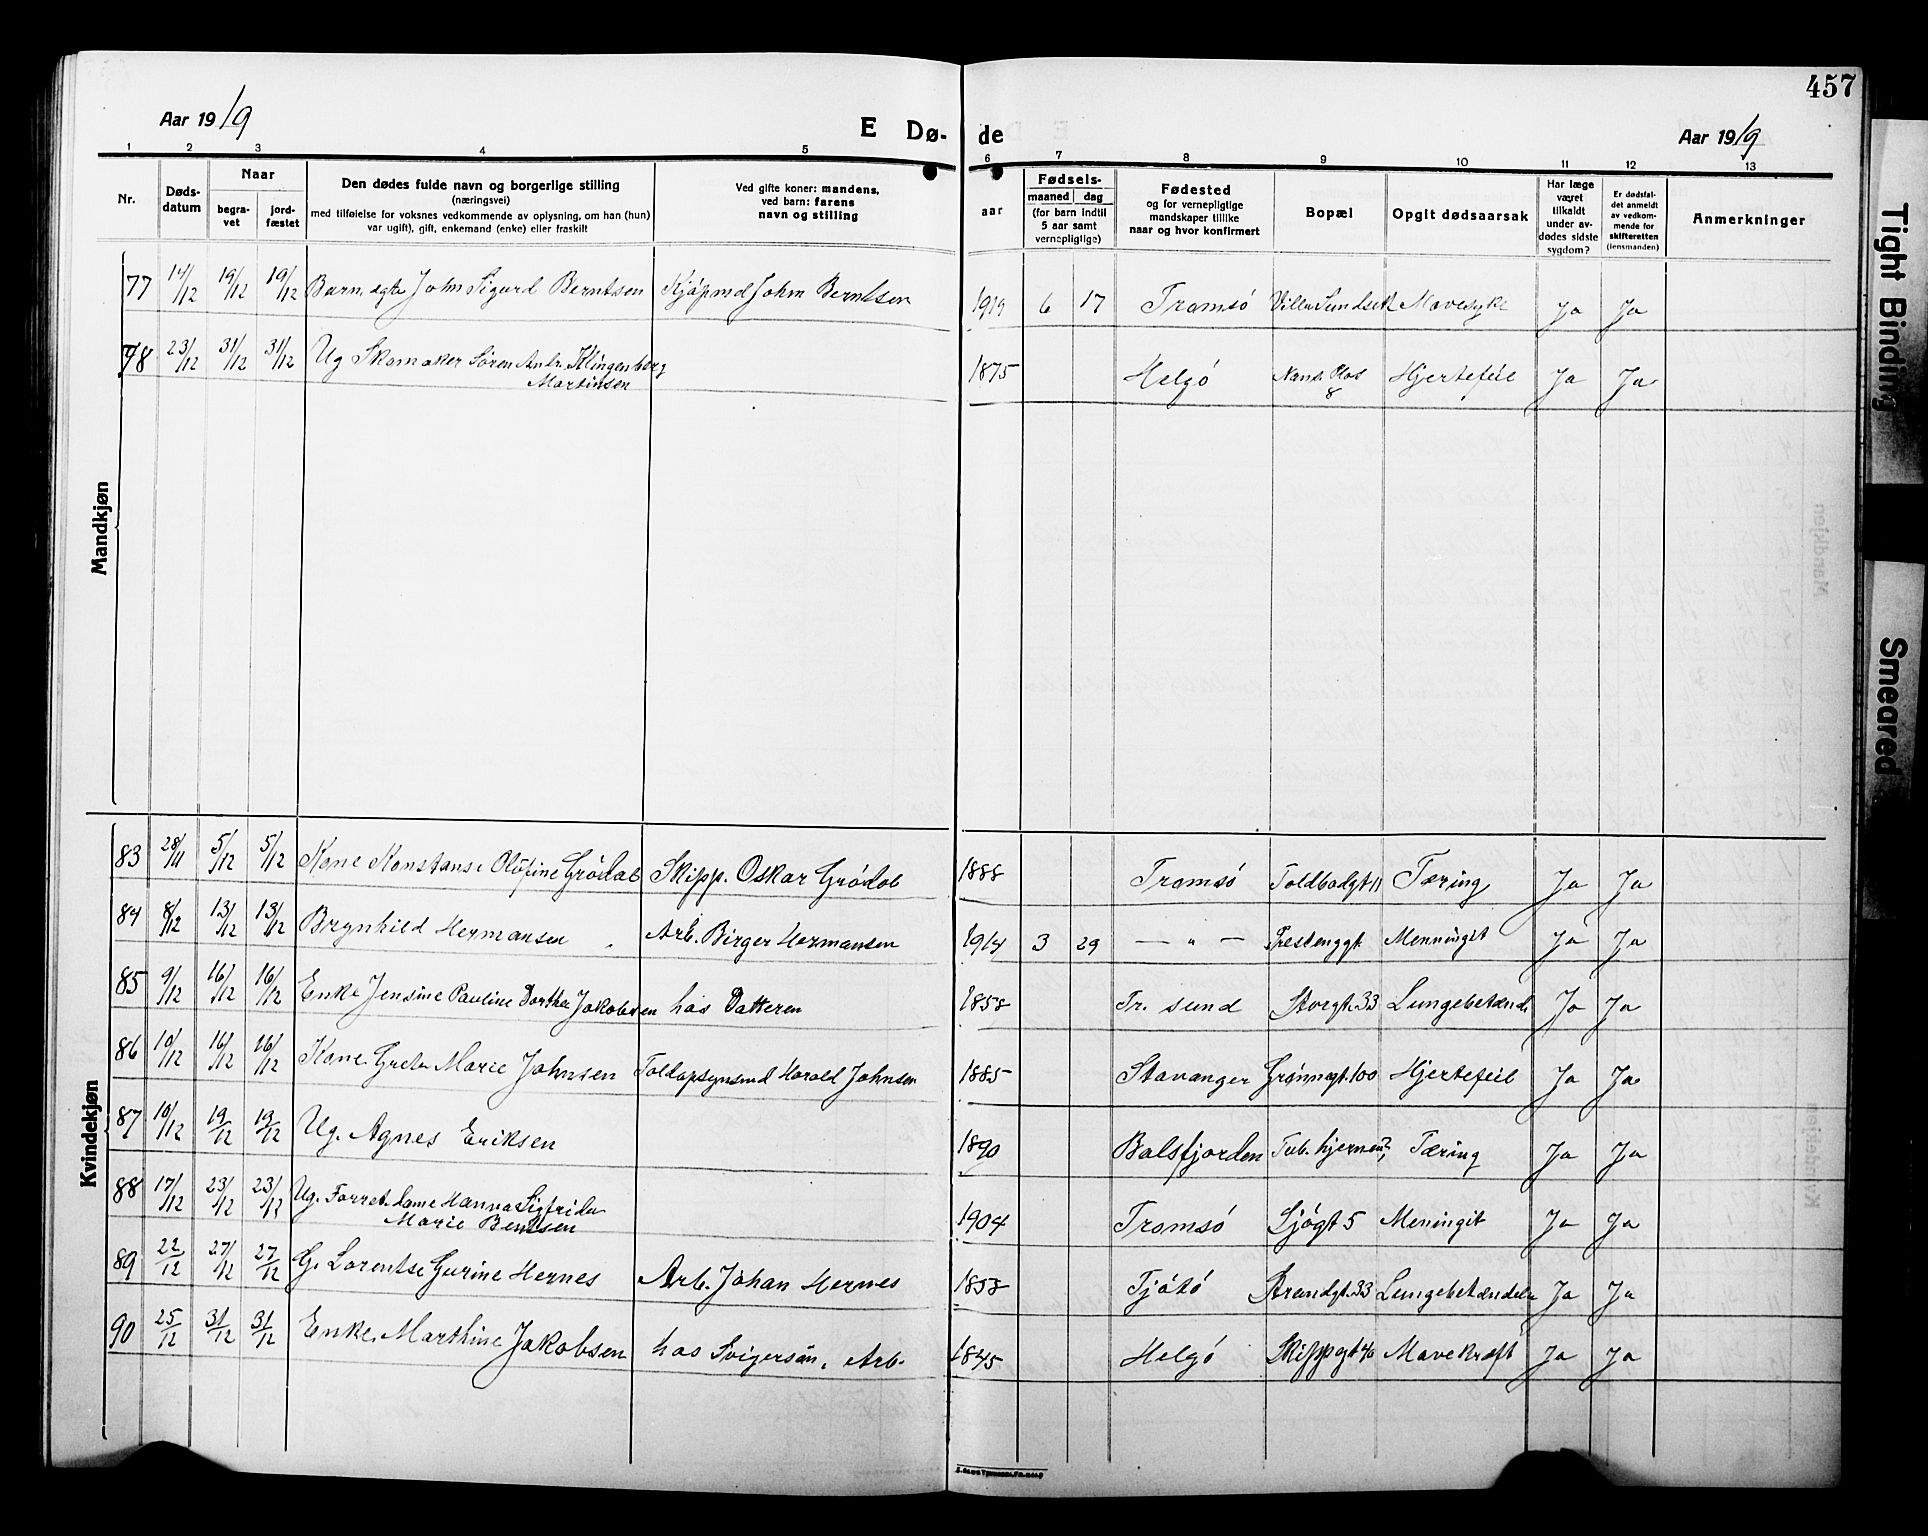 457
Aar 1919
E Dø-
de
Aar 1919
1 2 3 4 5 6 7 8 9 10 11 12 13
Nr.
Døds-
datum
Naar
begra-
vet
jord-
fæstet
Den dødes fulde navn og borgerlige stilling
(næringsvei)
med tilføielse for voksnes vedkommende av oplysning, om han (hun)
var ugift), gift, enkemand (enke) eller fraskilt
Ved gifte koner: mandens,
ved barn: farens
navn og stilling
aar
Fødsels-
maaned dag
(for barn indtil
5 aar samt
vernepligtige)
Fødested
og for vernepligtige
mandskaper tillike
naar og hvor konfirmert
Bopæl
Opgit dødsaarsak
Har læge
været
tilkaldt
under av-
dødes sidste
sygdom?
Er dødsfal-
det anmeldt
av vedkom-
mende for
skifteretten
(lensmanden)
Anmerkninger
Mandkjøn
77 14/12 19/12 19/12 Barn egte John Sigurd Berntsen Kjøpmd John Berntsen 1919 6 17 Tromsø Villa Sundsett Mavesyke Ja Ja
78 23/12 31/12 31/12 Ug Skomaker Søren Andr. Klingenberg
Martinsen 1875 Helgö Nans. Plas
8 Hjertefeil Ja Ja
Kvindekjøn
83 28/11 5/12 5/12 Kone Konstanse Olöfine Grödal Skipp. Oskar Grödal 1888 Tromsö Toldbodgt 11 Tæring Ja Ja
84 8/12 13/12 13/12 Brynhild Hermansen Arb. Birger Hermansen 1914 3 29 — " — Prestenggt. Menningit Ja Ja
85 9/12 16/12 16/12 Enke Jensine Pauline Dorthea Jakobsen hos Datteren 1858 Tr. sund Storgt. 33 Lungebetænd. Ja Ja
86 10/12 16/12 16/12 Kone Grete Marie Johnsen Toldopsynsmd Harald Johnsen 1885 Stavanger Grönnegt. 100 Hjertefeil Ja Ja
87 10/12 19/12 19/12 Ug. Agnes Eriksen 1890 Balsfjorden Tub. hjemmet, Tæring Ja Ja
88 17/12 23/12 23/12 Ug. Forret. dame Hanna Sigfrida
Marie Bentsen 1904 Tromsö Sjögt 5 Meningit Ja Ja
89 22/12 27/12 27/12 G. Lorentse Gurine Hernes Arb. Johan Hernes 1858 Tjötö Strandgt. 33 Lungebetændelse Ja Ja
90 25/12 31/12 31/12 Enke. Marthine Jakobsen hos Svigersön, Arb. 1845 Helgö Skippgt 40 Mavekræft Ja Ja
Tight Binding
Smeared